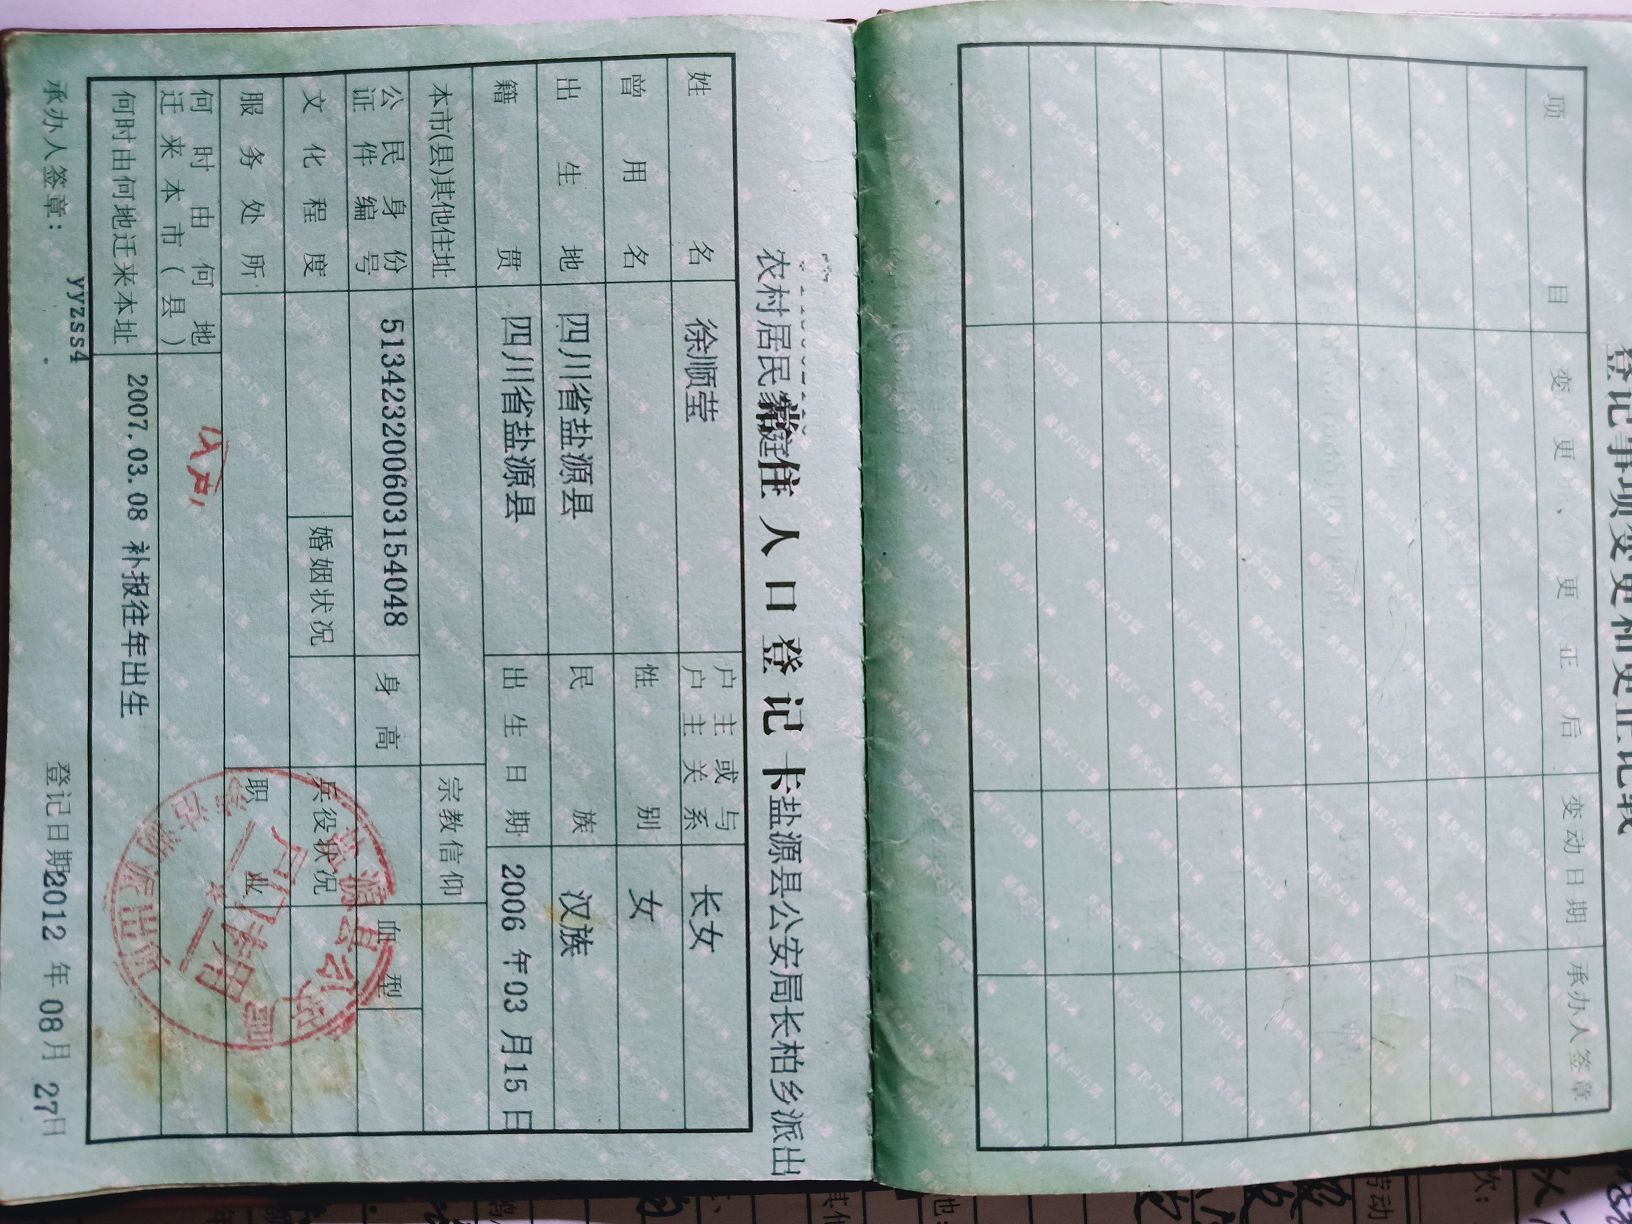 农村居民家庭
常住人口登记卡
盐源县公安局长柏乡派出
姓名 徐顺莹 户主或与户主关系 长女
曾用名 性别 女
出生地 四川省盐源县 民族 汉族
籍贯 四川省盐源县 出生日期 2006 年 03 月 15 日
本市(县)其他住址 宗教信仰
公民身份证件编号 513423200603154048 身高 血型
文化程度 婚姻状况 兵役状况
服务处所 职业
何时由何地迁来本市(县)
何时由何地迁来本址 2007.03.08 补报往年出生
承办人签章: yyzss4 登记日期: 2012 年 08 月 27 日
户口专用
登记事项变更和更正记载
项目 变更、更正后 变动日期 承办人签章